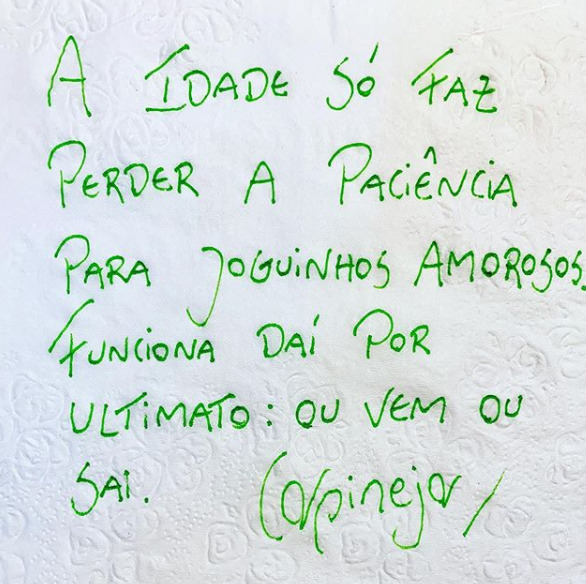 A IDADE SÓ FAZ
PERDER A PACIÊNCIA
PARA JOGUINHOS AMOROSOS.
FUNCIONA DAÍ POR
ULTIMATO: OU VEM OU
SAI. Carpinejar